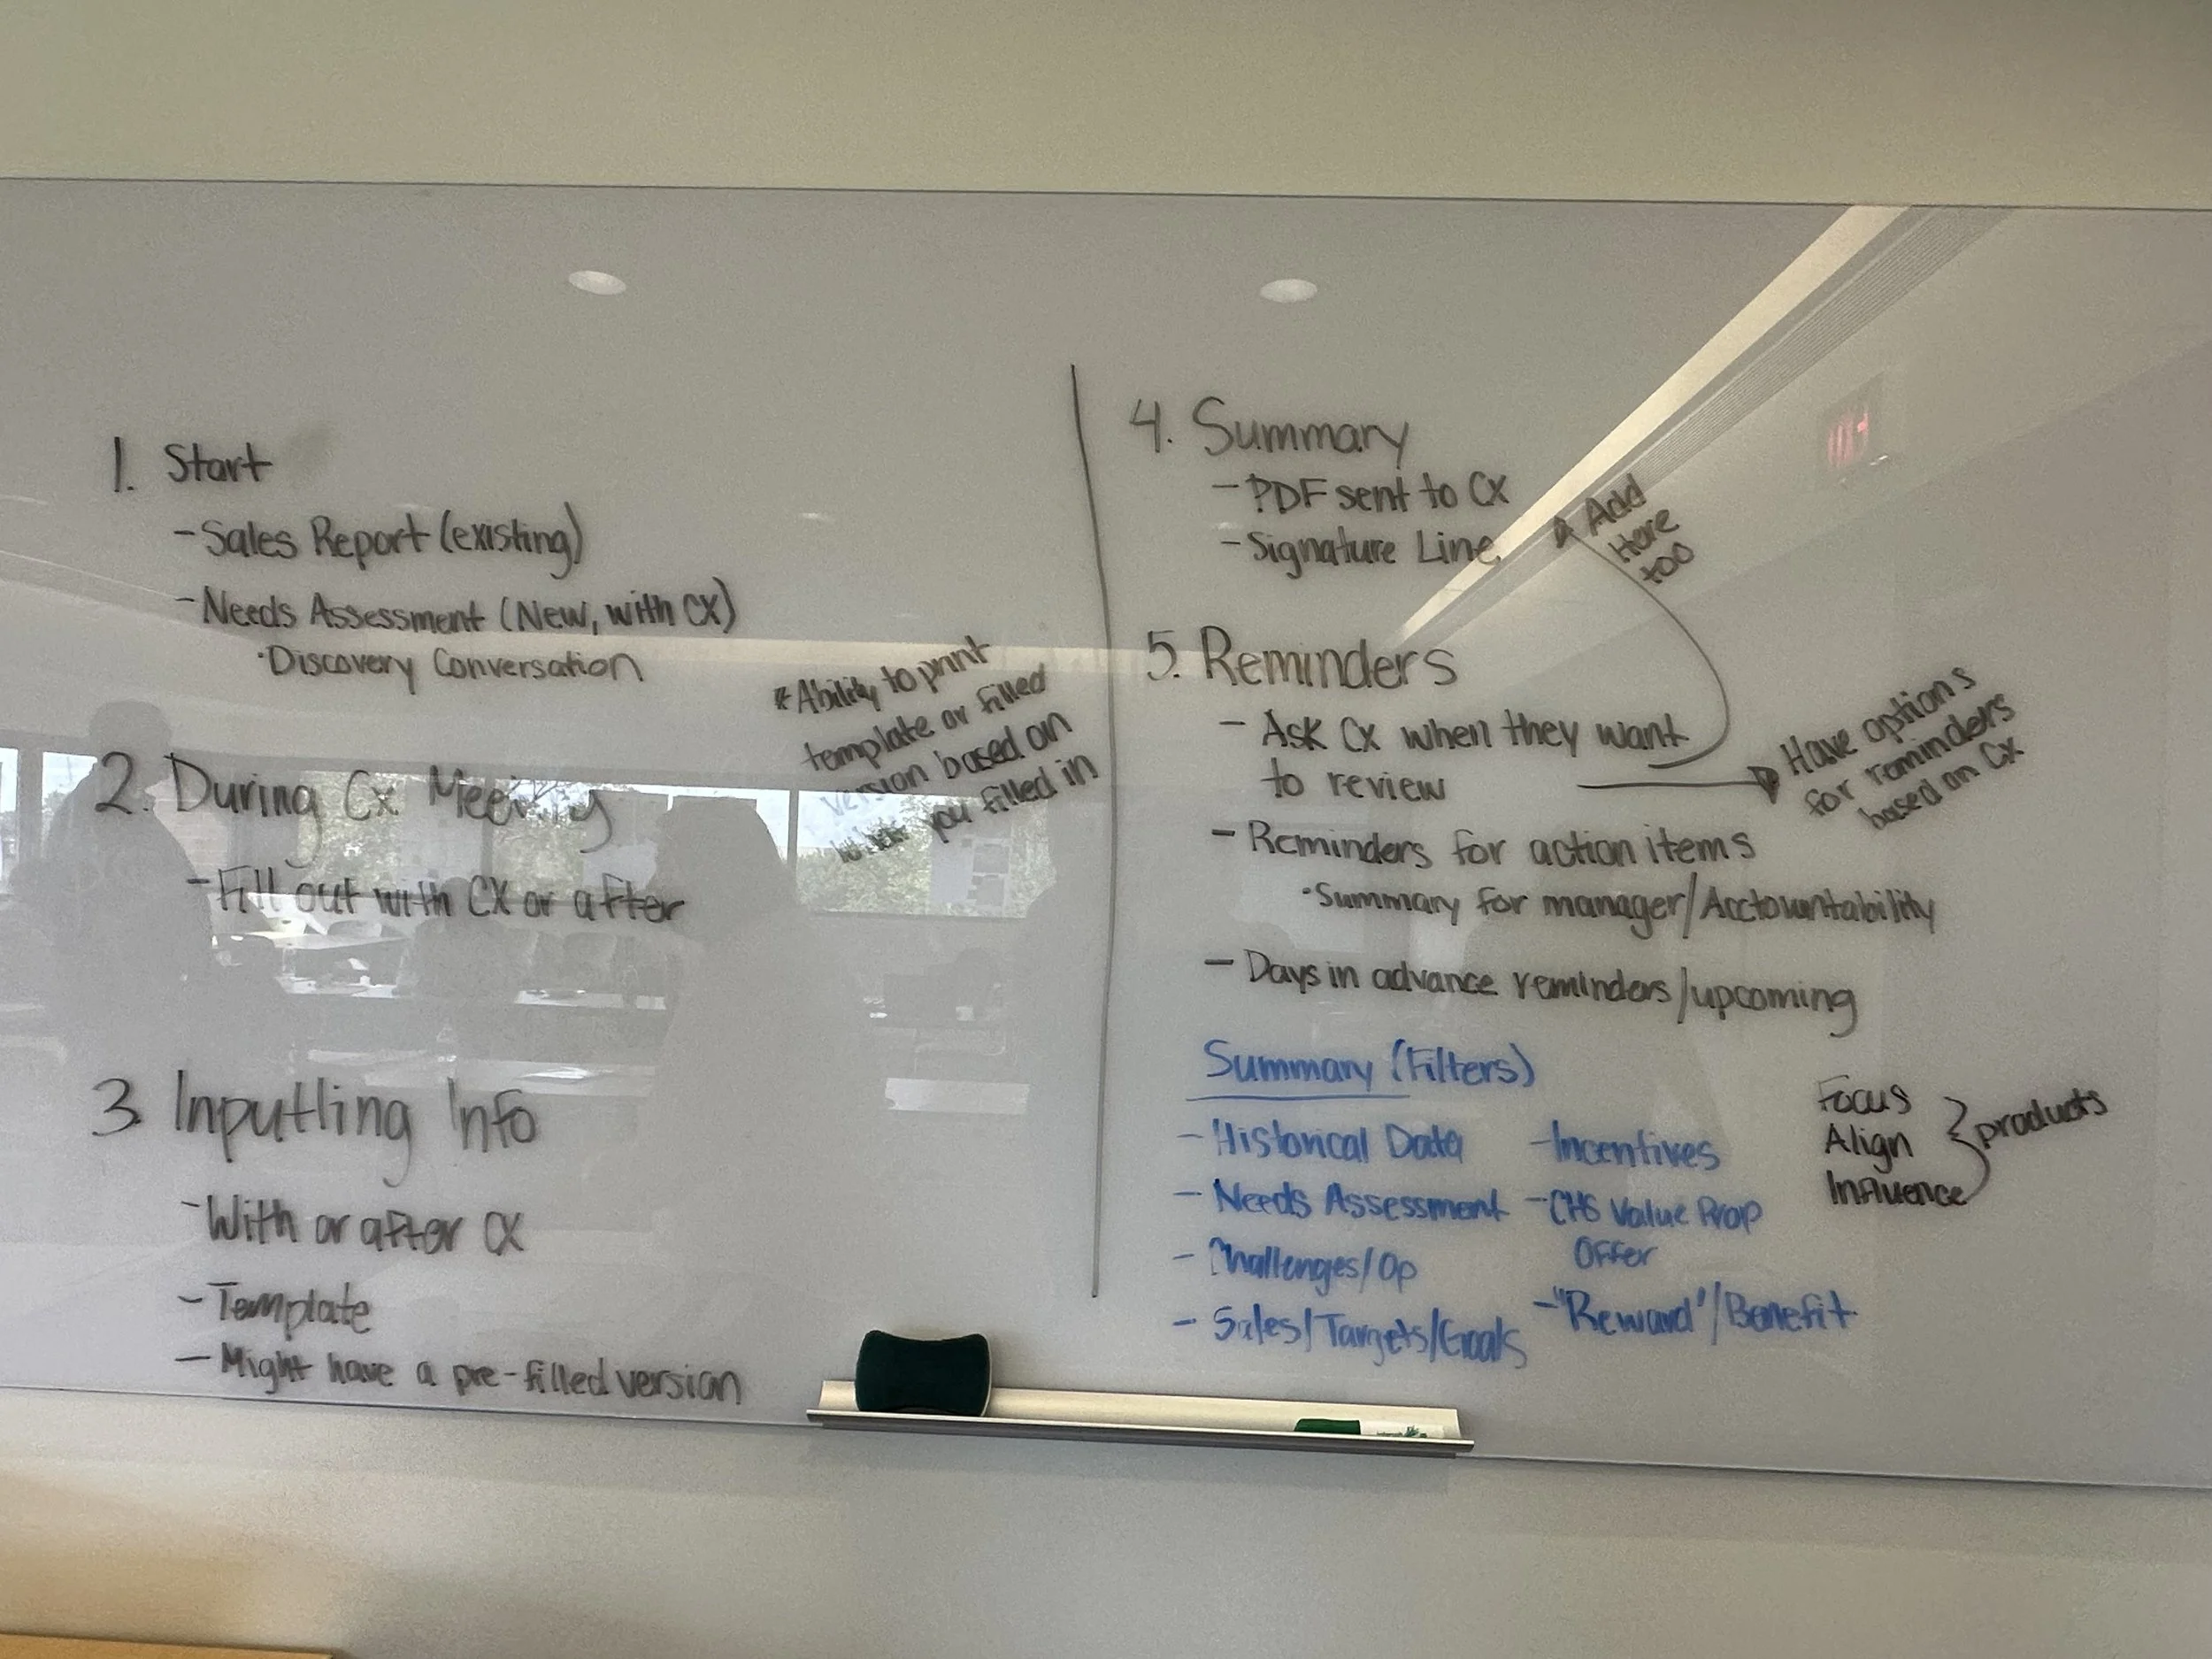 1. Start
- Sales Report (existing)
- Needs Assessment (New, with CX)
· Discovery Conversation
* Ability to print
template or filled
version based on
you filled in
2. During Cx Meeting
- Fill out with CX or after
3. Inputting Info
- With or after CX
- Template
- Might have a pre-filled version
4. Summary
- PDF sent to CX
- Signature Line
Add
Here
too
5. Reminders
- Ask Cx when they want
to review
Have options
for reminders
based on Cx
- Reminders for action items
· Summary for manager/Acctountability
- Days in advance reminders/upcoming
Summary (Filters)
- Historical Data
- Needs Assessment
- Challenges/Op
- Sales/Targets/Goals
- Incentives
- CHS Value Prop
Offer
- "Reward"/Benefit
Focus
Align
Influence
} products